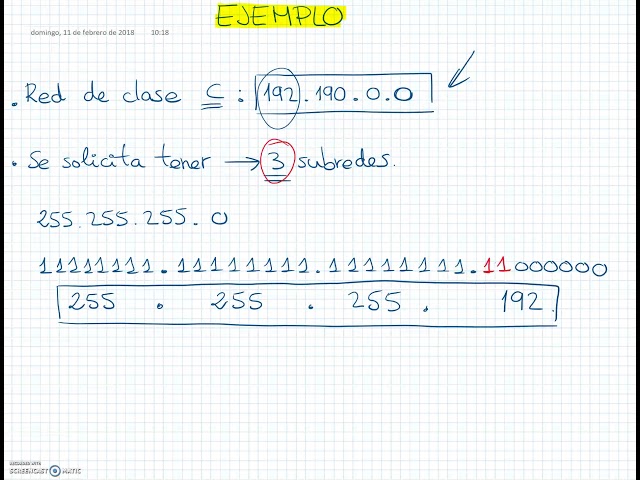 EJEMPLO
domingo, 11 de febrero de 2018 10:18
. Red de clase C : 192.190.0.0
. Se solicita tener → 3 subredes.
255.255.255.0
11111111.11111111.11111111.11000000
255 . 255 . 255 . 192.
RECORDED WITH
SCREENCAST O MATIC